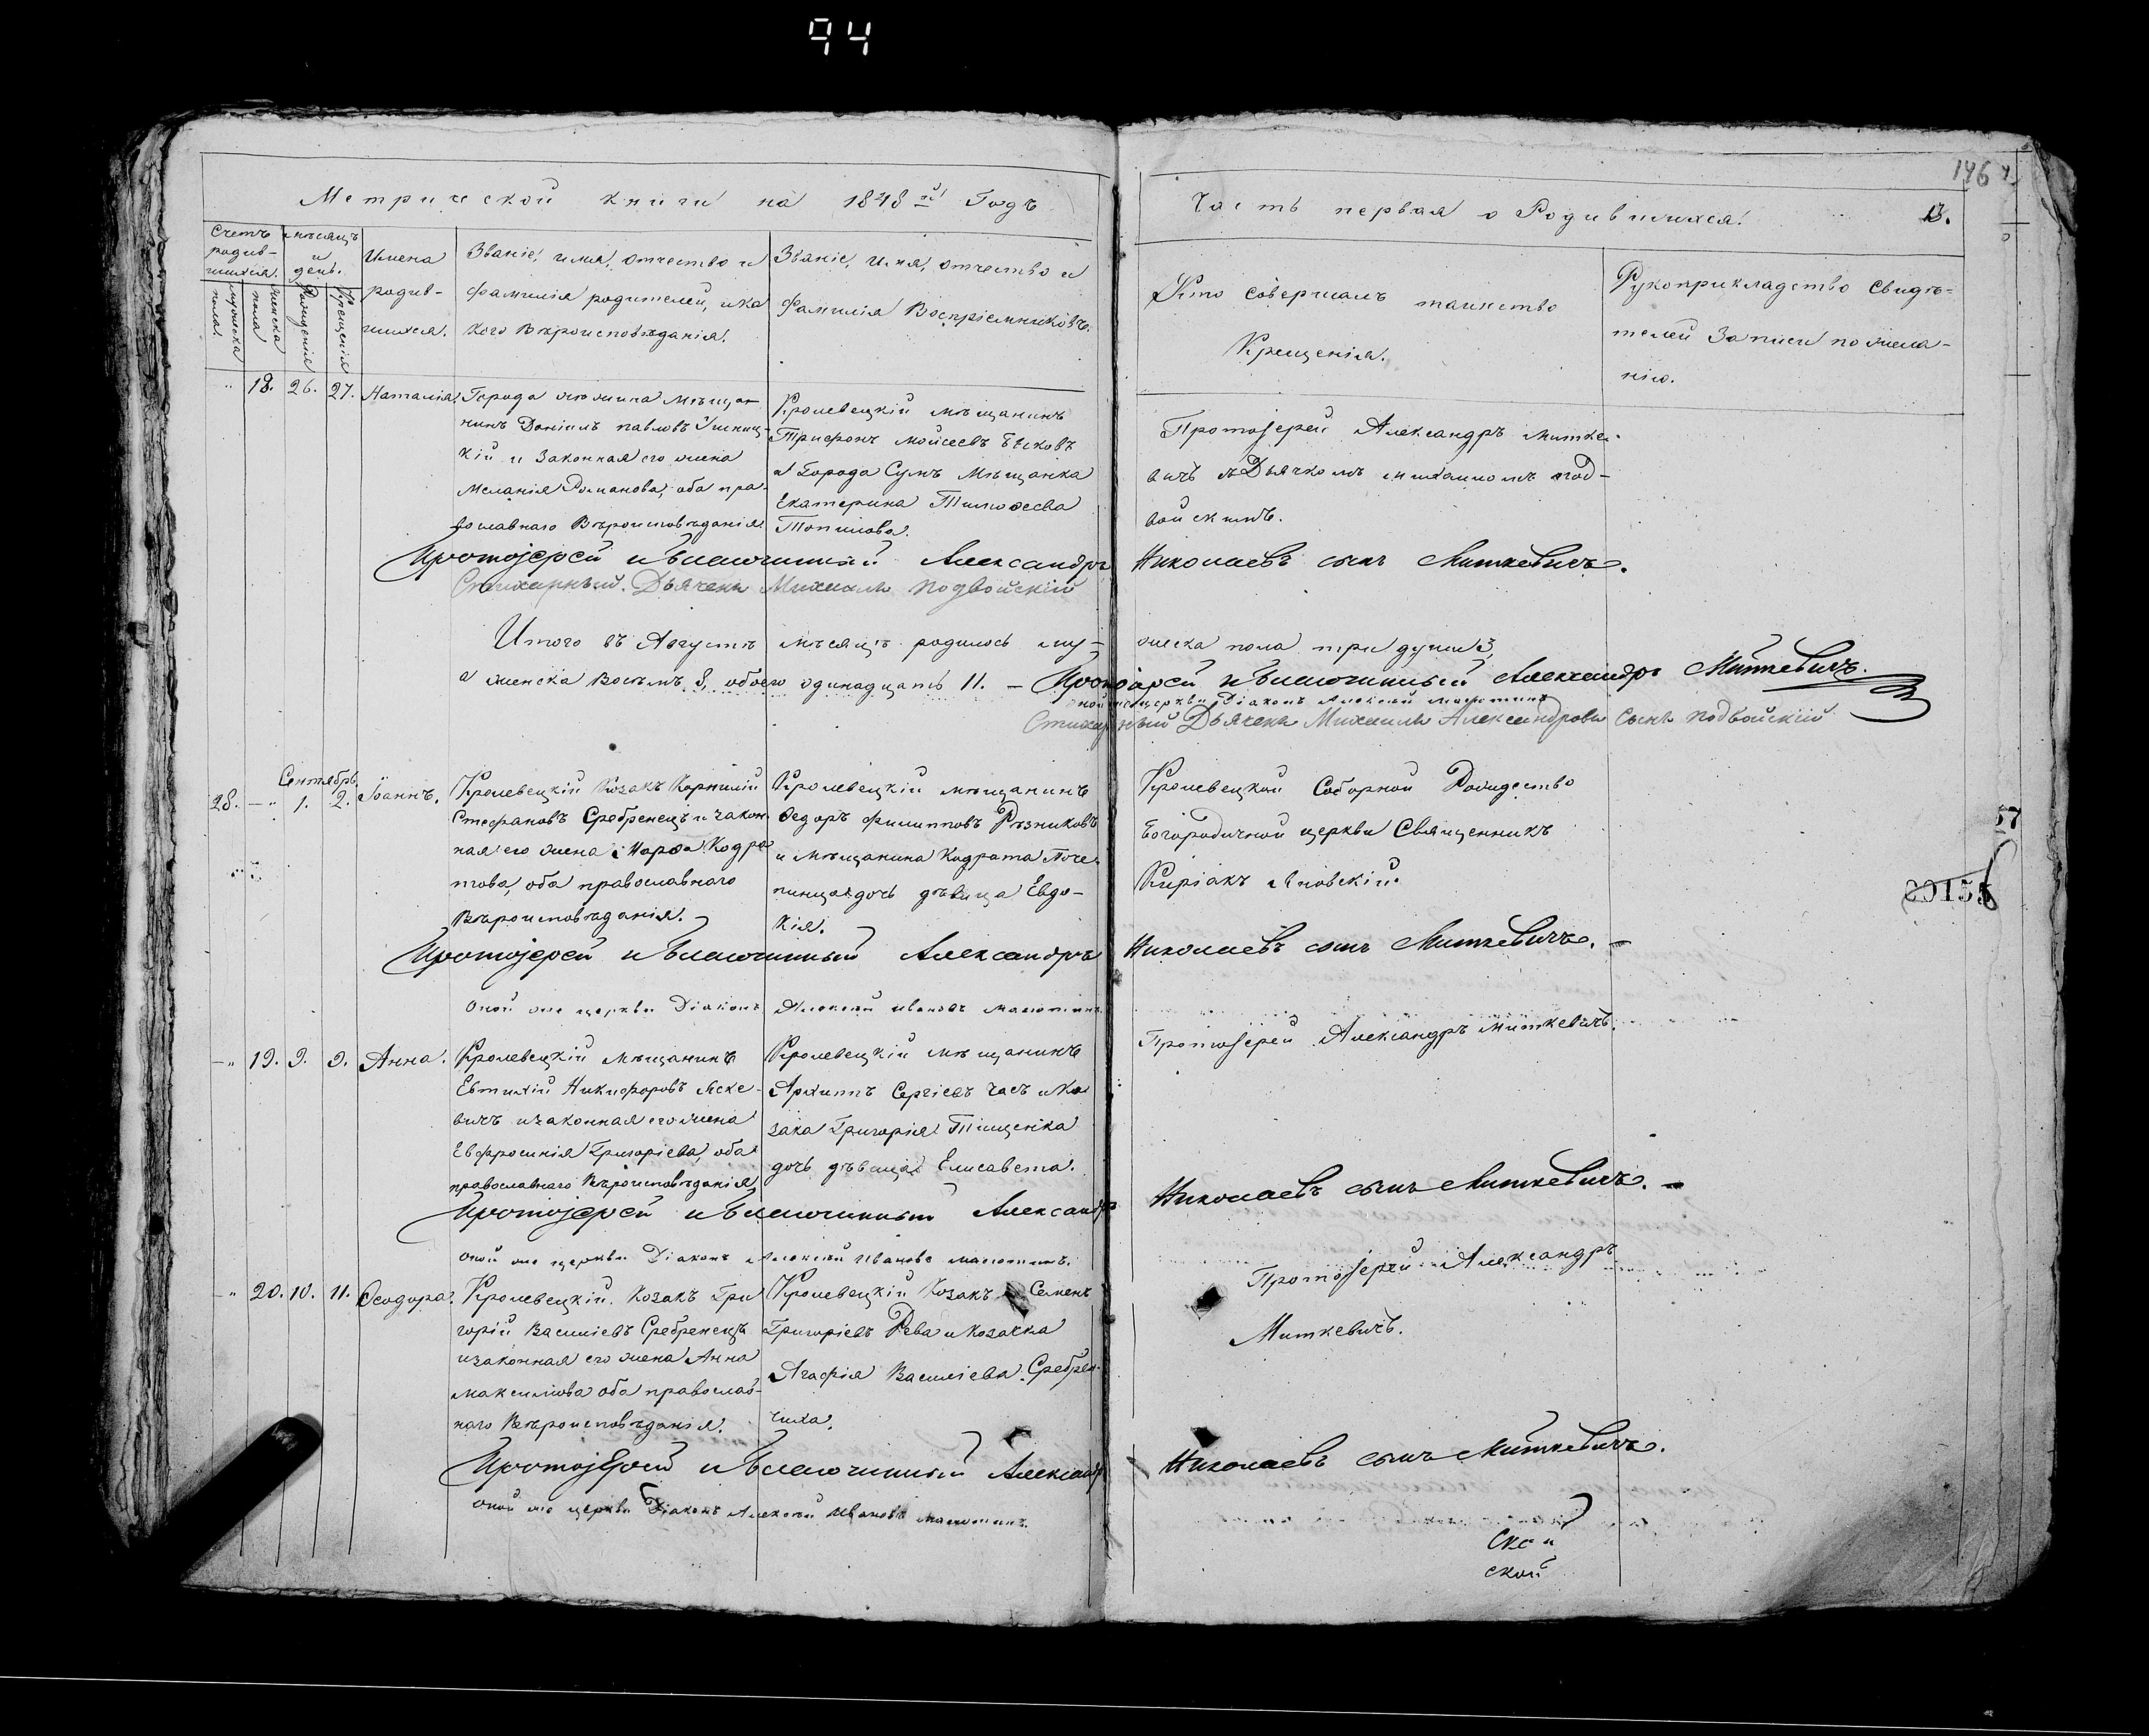 94
146
Метрической книги на 1848й Годъ
Часть первая о Родившихся.
13.
Счетъ родив-шихся.
мѣсяцъ и день.
мужеска пола.
женска пола.
Рожденія
Крещенія
Имена
родив-
шихся.
Званіе, имя, отчество и
фамилія родителей, и ка
кого вѣроисповѣданія.
Званіе, имя, отчество и
фамилія Воспріемниковъ.
Кто совершалъ таинство
Крещенія.
Рукоприкладство свидѣ-
телей Записи по жела-
нію.
18. 26. 27. Наталія.
Города мѣща-
нинъ Даніилъ павловъ
кій и Законная его жена
Меланія Романова, оба пра-
вославнаго Вѣроисповѣданія.
Кролевецкій мѣщанинъ
Трифонъ Мойсеевъ Бѣковъ
и Города Сумъ Мѣщанка
Екатерина Тимофеева
Топилова.
Протоіерей Александръ Митке-
вичъ съ Дьячкомъ михаиломъ под-
войскимъ.
Протоіерей и благочинный Александръ Николаевъ сынъ Миткевичъ.
Стихарный Дьячекъ Михаилъ Подвойскій
Итого въ Августѣ мѣсяцѣ родилось му-жеска пола три души 3,
а женска Восемь 8, обоего одинадцать 11. — Протоіерей и благочинный Александръ Миткевичъ.
церкви Діаконъ Алексѣй
Стихарный Дьячекъ Михаилъ Александровъ сынъ Подвойскій
Сентябрь.
28. — 1. 2. Іоаннъ.
Кролевецкій Козакъ Корнилій
Стефановъ Сребренецъ и закон-
ная его жена Марфа Кодра
това, оба православнаго
Вѣроисповѣданія.
Кролевецкій мѣщанинъ
Федоръ филипповъ Рѣзниковъ
и мѣщанина Кодрата Поче-
пинца дочь дѣвица Евдо-
кія.
Кролевецкой Соборной Рождество
Богородичной церкви Священникъ
Киріакъ Яновскій.
57
00155
Протоіерей и благочинный Александръ Николаевъ сынъ Миткевичъ. —
Оной же церкви Діаконъ Алексѣй Ивановъ Малютинъ
— 19. 9. 9. Анна.
Кролевецкій Мѣщанинъ
Евтихій Никифоровъ Яске-
вичъ и законная его жена
Евфросинія Григоріева, оба
православнаго Вѣроисповѣданія
Кролевецкій мѣщанинъ
Архипъ Сергіевъ Часъ и Ко
зака Григорія Тищенка
дочь дѣвица Елисавета.
Протоіерей Александръ Миткевичъ.
Протоіерей и благочинный Александръ Николаевъ сынъ Миткевичъ. —
Оной же церкви Діаконъ Алексѣй Ивановъ Малютинъ.
— 20. 10. 11. Феодора.
Кролевецкій Козакъ Гри
горій Василіевъ Сребренецъ
и законная его жена Анна
максимова оба православ-
наго Вѣроисповѣданія.
Кролевецкій Козакъ Семенъ
Григоріевъ Рева и Козачка
Агафія Василіева Сребрен-
чиха.
Протоіерей Александръ
Миткевичъ.
Протоіерей и благочинный Александръ Николаевъ сынъ Миткевичъ.
Оной же церкви Діаконъ Алексѣй Ивановъ Малютинъ.
ской